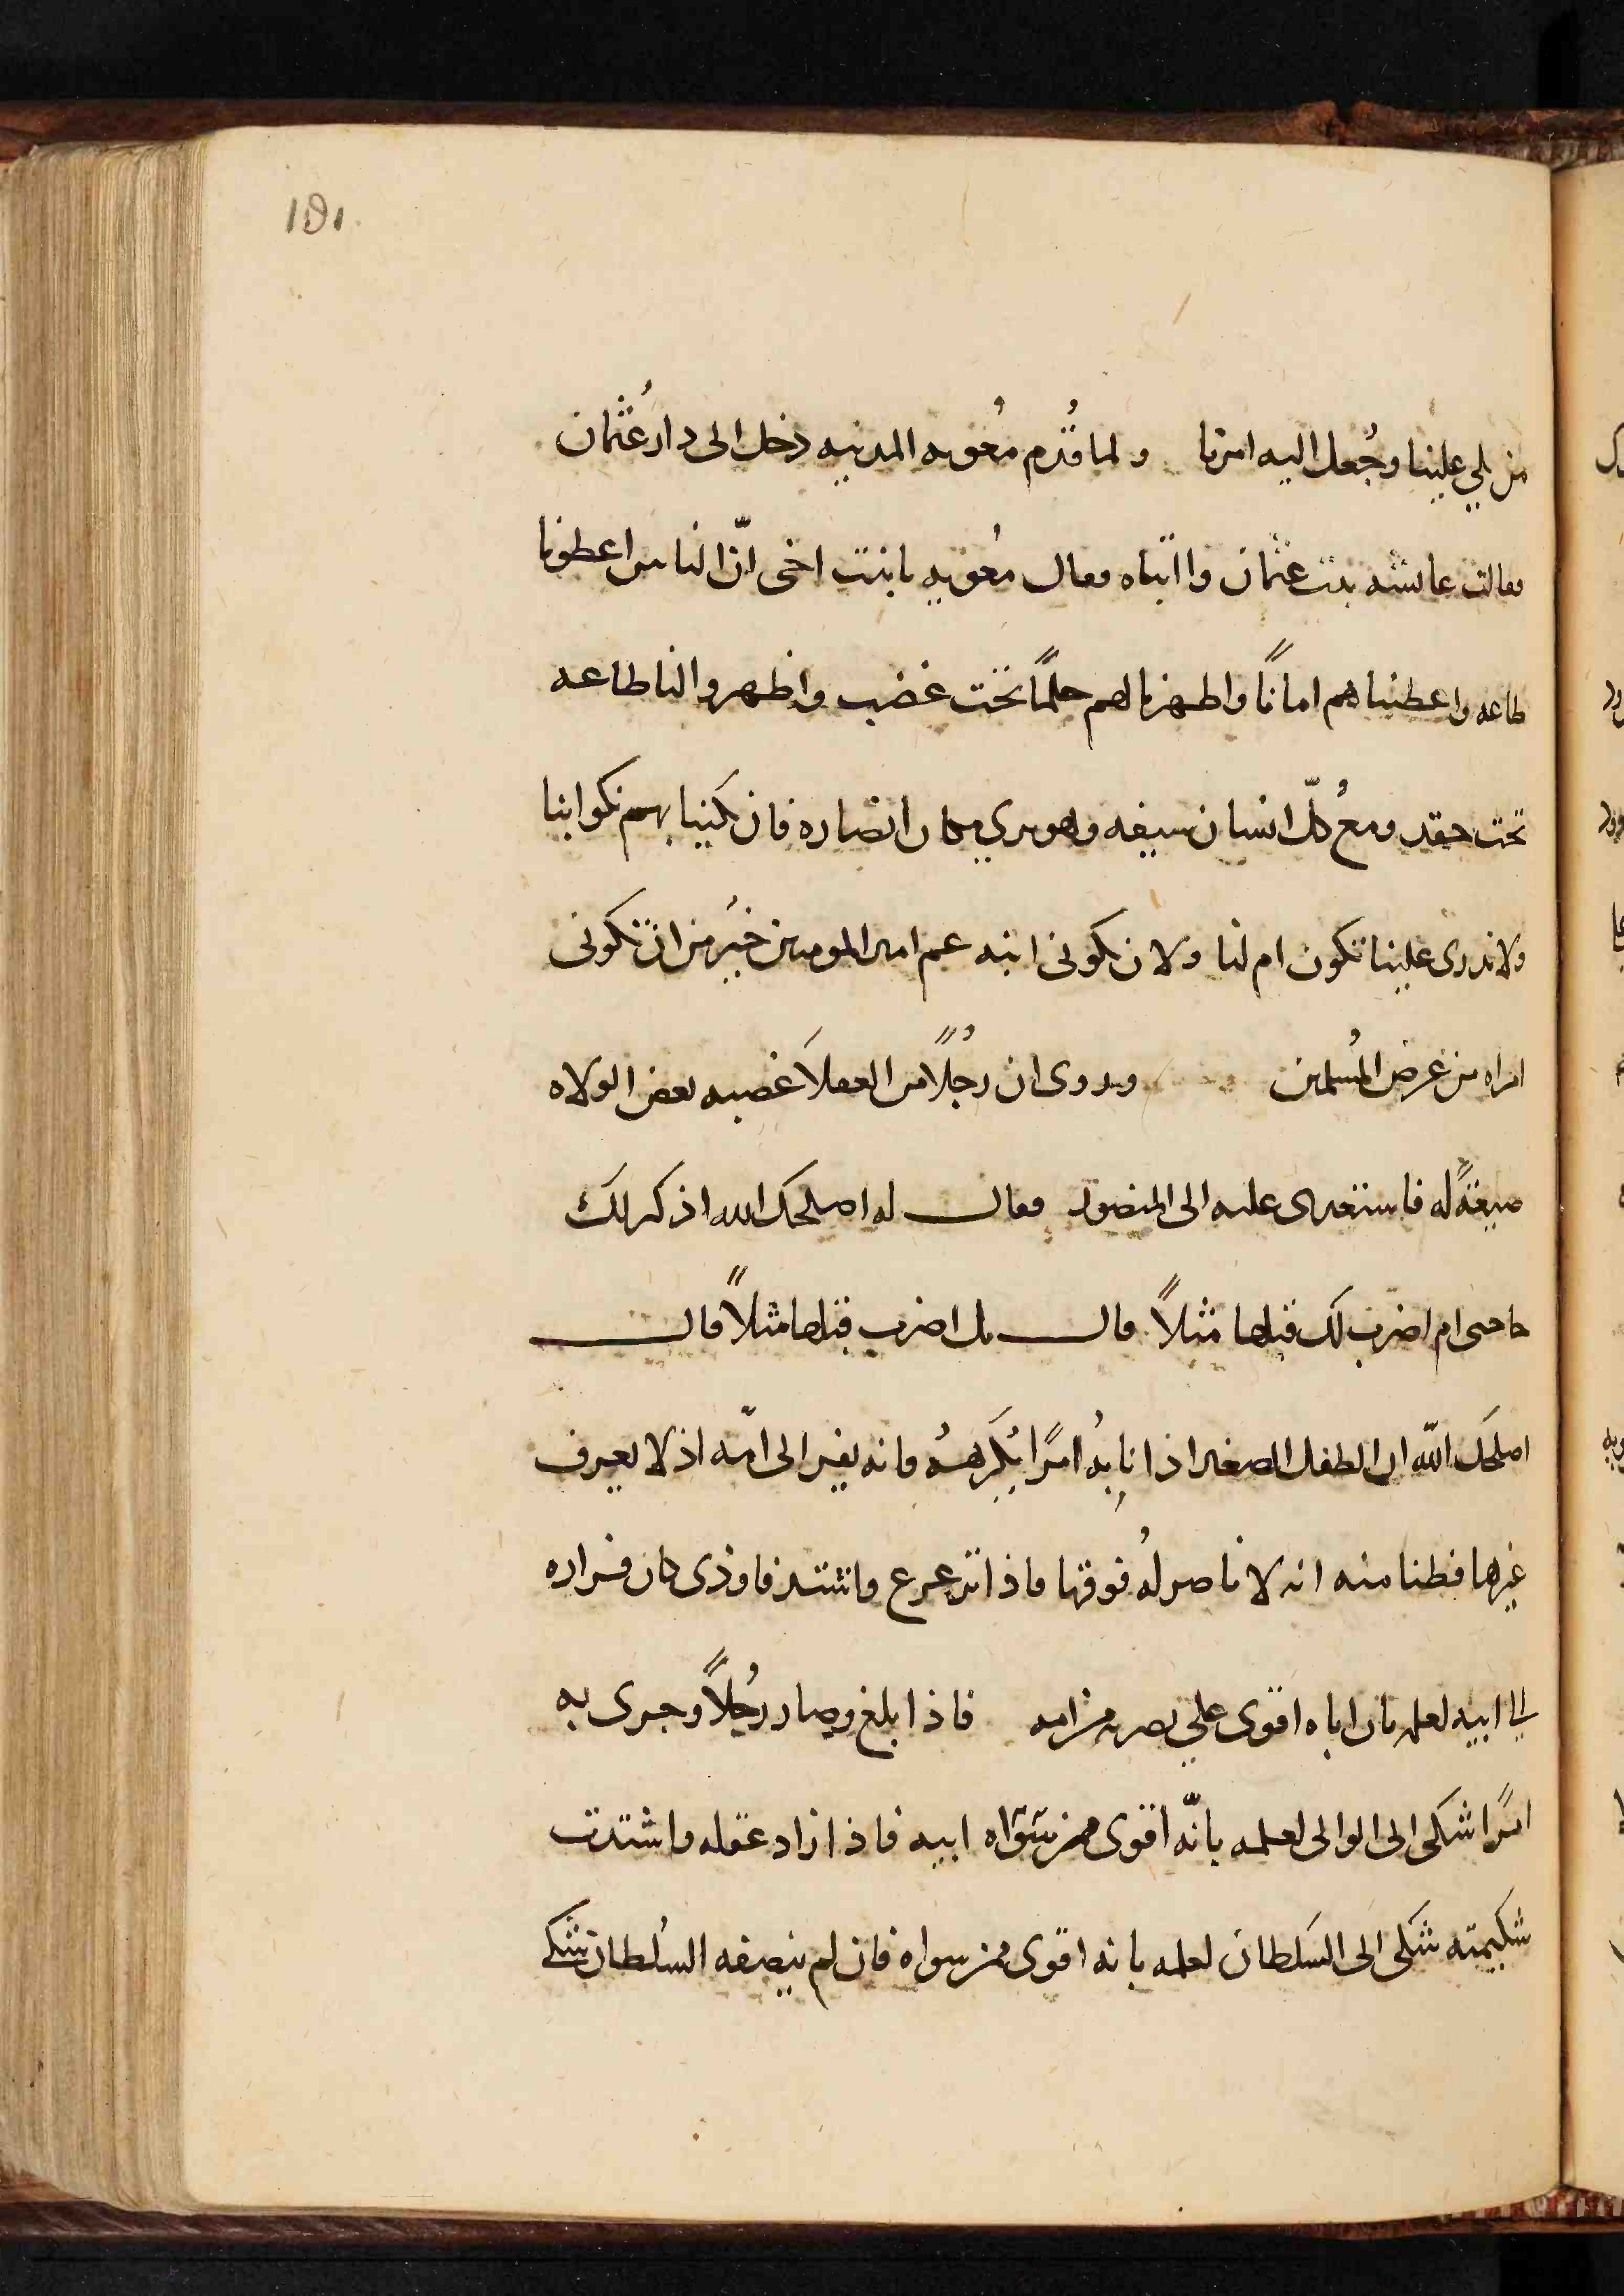 ١٥١
من يلي علينا وجُعل اليه امرنا ولما قُدم مُعويه المدينه دخل الى دار عُثمان
فقالت عايشه بنت عثمان وا ابتاه فقال مُعويه يا بنت اخى انّ الناس اعطونا
طاعه واعطيناهم امانًا واظهرنا لهم حلمًا تحت غضب واظهروا لنا طاعه
تحت حقد ومعُ كلّ انسان سيفه وهو يري مكان انصاره فان نكثنا بهم نكثوا بنا
ولا ندرى علينا تكون ام لنا ولان تكونى ابنه عم امير المومنين خيرُ من ان تكونى
امراه من عرض المُسلمين وروى ان رجُلًا من العقلاَ غصبه بعض الولاه
ضيعةً له فاستعدى عليه الى المنصور فقال له اصلحك الله اذكر لك
حاجتى ام اضرب لك قبلها مثلاً قال بل اضرب قبلها مثلاً قال
اصلحك الله ان الطفل الصغير اذا نابهُ امرًا يكرههُ فانه يفر الى امّه اذ لا يعرف
غيرها فظنا منه انه لا ناصر لهُ فوقها فاذا ترعرع واشتد فاوذى كان فراره
الى ابيه لعلمه بان اباه اقوى علي نصره من امه فاذا بلغ وصار رجُلاً وجرى به
امرًا شكى الى الوالى لعلمه بانّه اقوى ممن سواه ابيه فاذا زاد عقله واشتدت
شكيمته شكى الى السلطان لعلمه بانه اقوى ممن سواه فان لم ينصفه السُلطان شكى